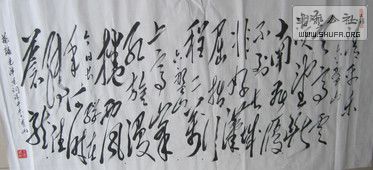 书法公社
WWW.SHUFA.ORG
清平乐
六盘山
天高云
淡望断
南飞雁
不到长城
非好汉
屈指行
程二万
六盘山
上高峰
红旗漫
捲西风
今日长缨在
手何时缚住
苍龙